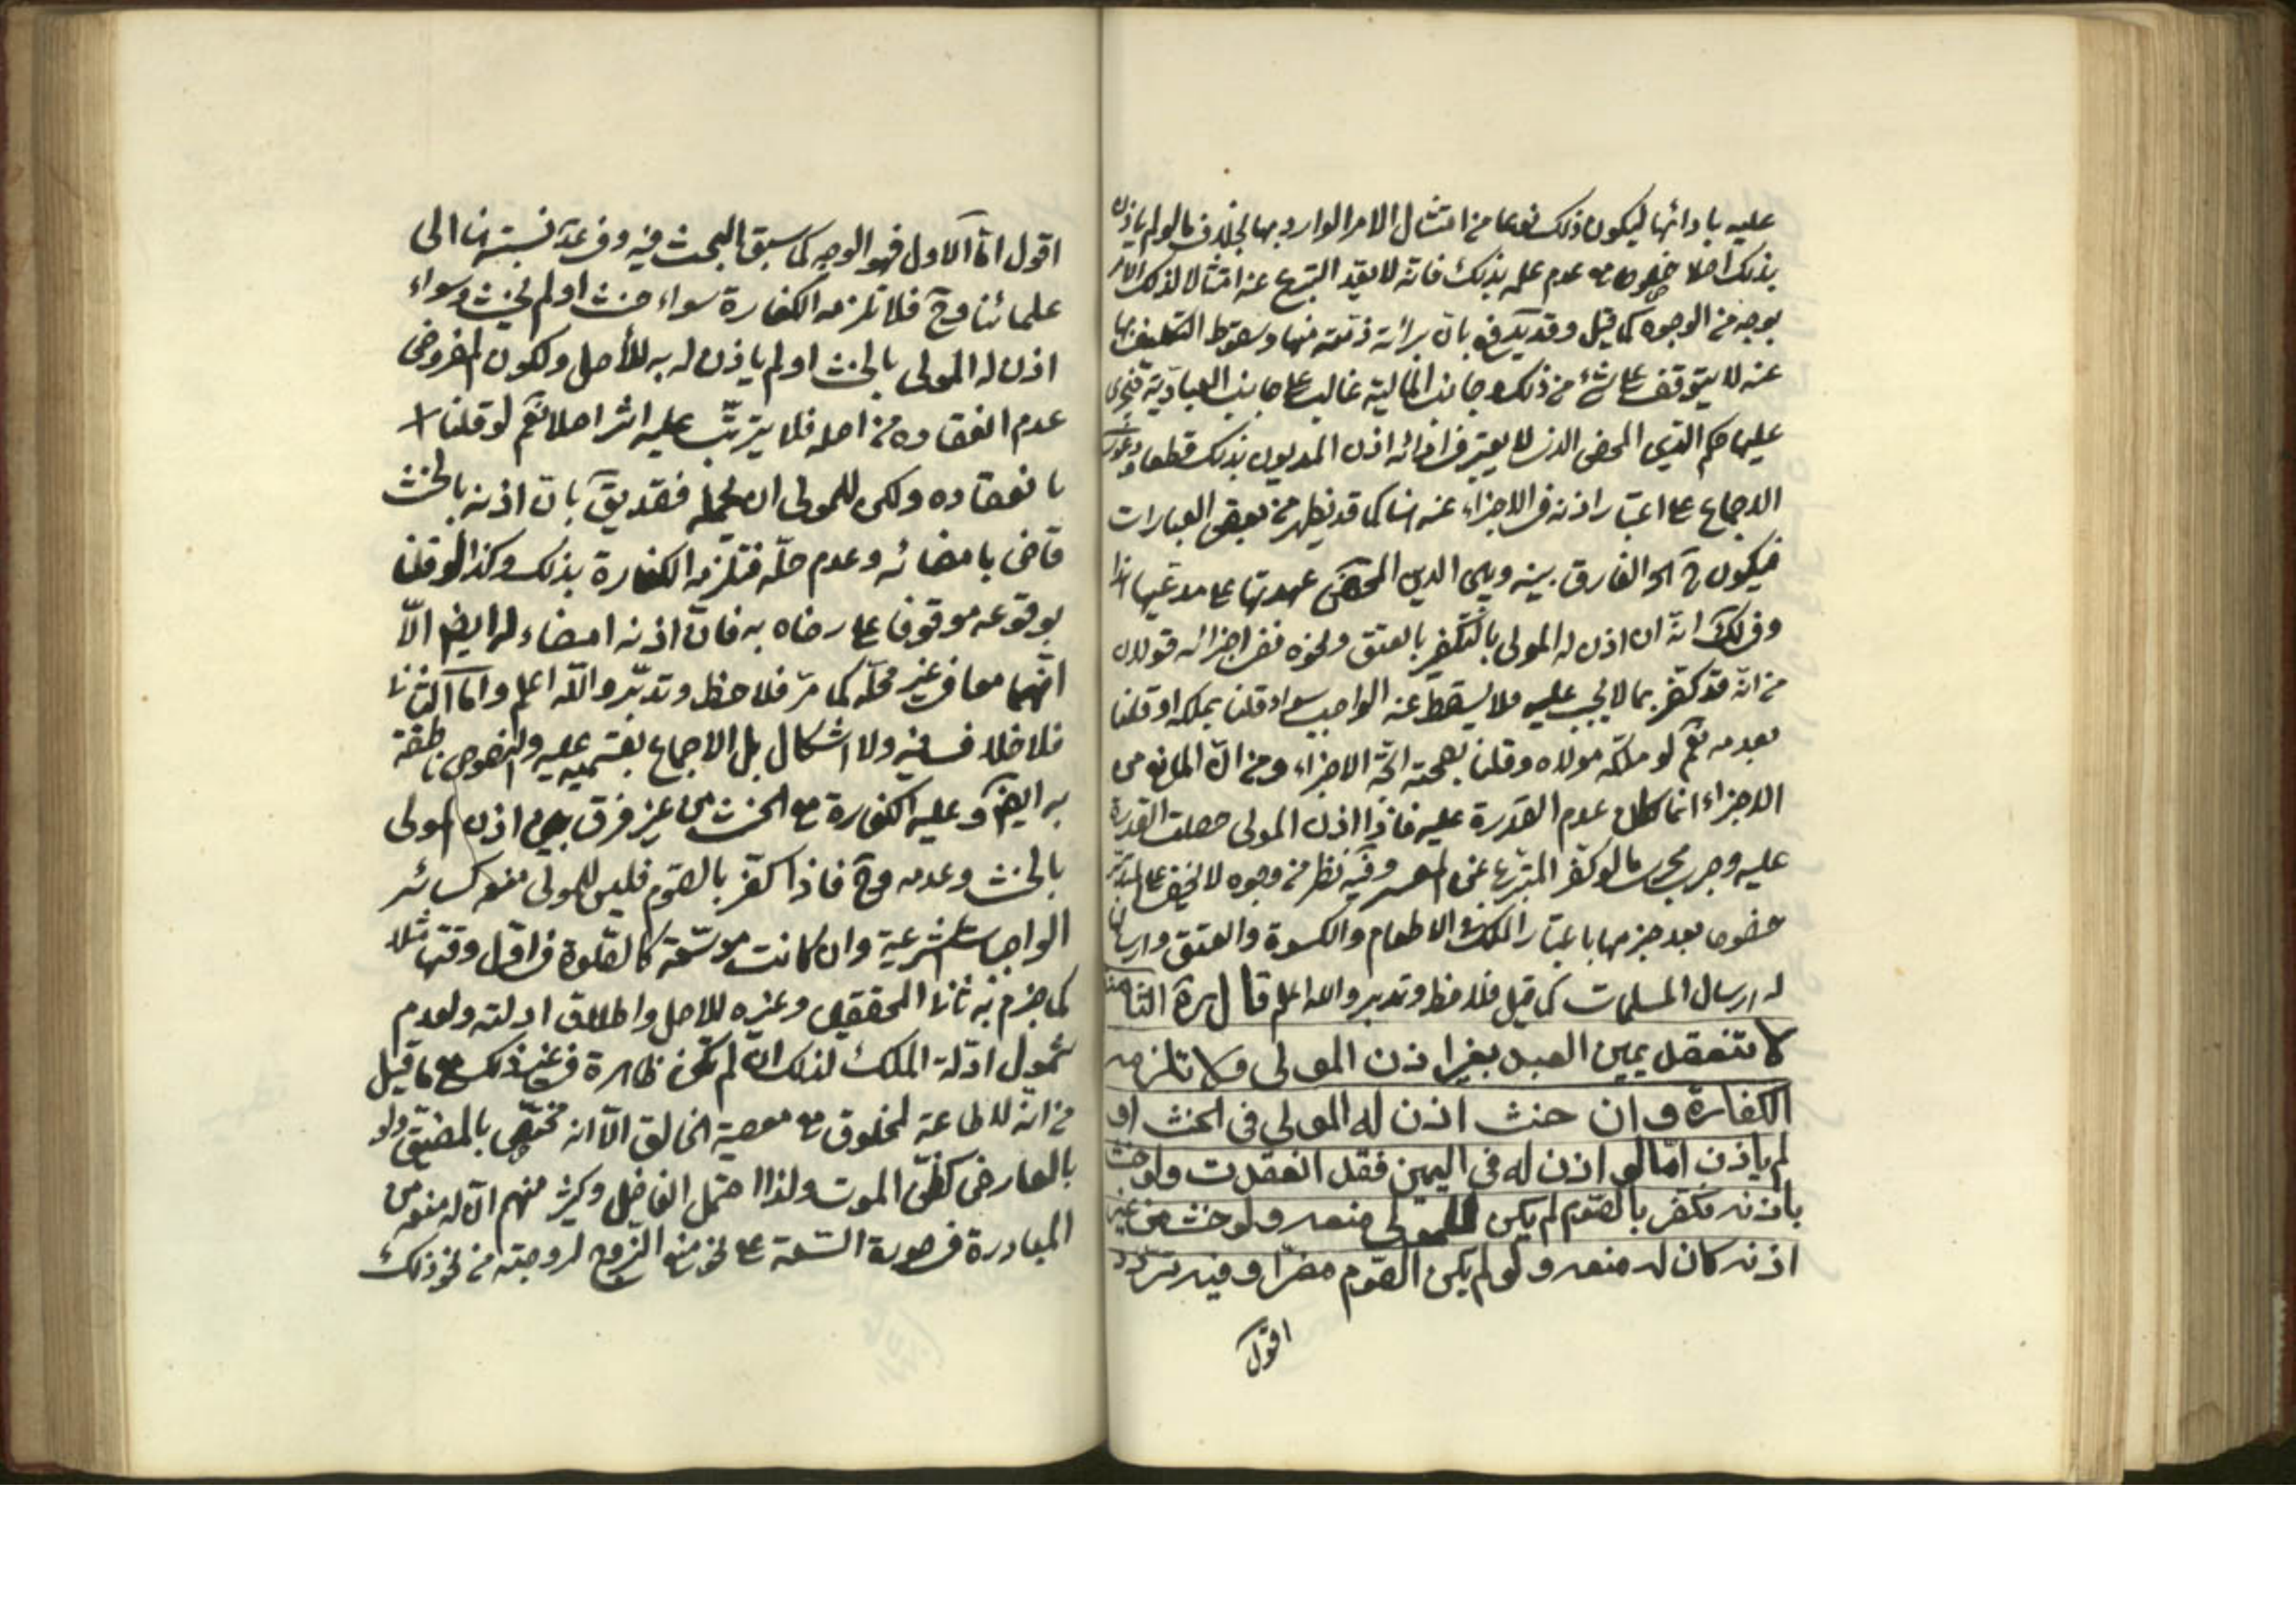 عليه بادائها ليكون ذلك نوعا من امتثال الامر الوارد بها بخلاف ما لو لم ياذن
بذلك اصلا خصوصا مع عدم علمه بذلك فانه لا يعد التبرع عنه امتثالا لذلك الامر
بوجه من الوجوه كما قيل وقد يدفع بان برائة ذمته منها وسقوط التكليف بها
عنه لا يتوقف على شئ من ذلك وجانب المالية غالب على جانب العبادية فيجرى
عليها حكم الدين المحض الذى لا يعتبر فى ادائه اذن المديون بذلك قطعا ودعوى
الاجماع على اعتبار اذنه فى الاجزاء عنه هنا كما قد يظهر من بعض العبارات
فيكون ح هو الفارق بينه وبين الدين المحض عهدتها على مدعيها هذا
وفى لك انه ان اذن له المولى بالتكفير بالعتق ونحوه ففى اجزائه قولان
من انه قد كفر بما لا يجب عليه فلا يسقط عنه الواجب سواء قلنا بملكه او قلنا
بعدمه نعم لو ملكه مولاه وقلنا بصحته اتجه الاجزاء ومن ان المانع من
الاجزاء انما كان عدم القدرة عليه فاذا اذن المولى حصلت القدرة
عليه وجرى مجرى ما لو كفر المتبرع عن المعسر وفيه نظر من وجوه لا تخفى على المتدبر
خصوصا بعد جزمها باعتبار الملك فى الاطعام والكسوة والعتق وارسالها
له ارسال المسلمات كما قيل فلاحظ وتدبر والله اعلم قال ره الثامنة
لا تنعقد يمين العبد بغير اذن المولى ولا تلزمه
الكفارة وان حنث اذن له المولى فى الحنث او
لم ياذن اما لو اذن له فى اليمين فقد انعقدت ولو حنث
باذنه فكفر بالصوم لم يكن للمولى منعه ولو حنث من غير
اذنه كان له منعه ولو لم يكن الصوم مضرا وفيه تردد
اقول
اقول اما الاول فهو الوجه كما سبق البحث فيه وفى عدة نسبتها الى
علمائنا وح فلا تلزمه الكفارة سواء حنث او لم يحنث وسواء
اذن له المولى بالحنث او لم ياذن له به للأصل ولكون المفروض
عدم انعقاده من اصله فلا يترتب عليه اثر اصلا نعم لو قلنا
بانعقاده ولكن للمولى ان يحله فقد يق بان اذنه بالحنث
قاض بامضائه وعدم حله فتلزمه الكفارة بذلك وكذا لو قلنا
بوقوعه موقوفا على رضاه به فان اذنه امضاء له ايضا الا
انهما معا فى غير محله كما مر فلاحظ وتدبر والله اعلم واما الثانى
فلا خلاف فيه ولا اشكال بل الاجماع بقسميه عليه والنصوص ناطقة
به ايضا وعليه الكفارة مع الحنث من غير فرق بين اذن المولى
بالحنث وعدمه وح فاذا كفر بالصوم فليس للمولى منعه كسائر
الواجبات الشرعية وان كانت موسعة كالصلوة فى اول وقتها مثلا
كما جزم به ثانى المحققين وغيره للاصل واطلاق ادلته ولعدم
شمول ادلة الملك لذلك ان لم تكن ظاهرة فى غير ذلك مع ما قيل
من انه لا طاعة لمخلوق مع معصية الخالق الا انه مختص بالمضيق ولو
بالعارض كظن الموت ولذا احتمل الفاضل وكثير منهم ان له منعه من
المبادرة فى صورة السعة على نحو منع الزوج لزوجته من نحو ذلك